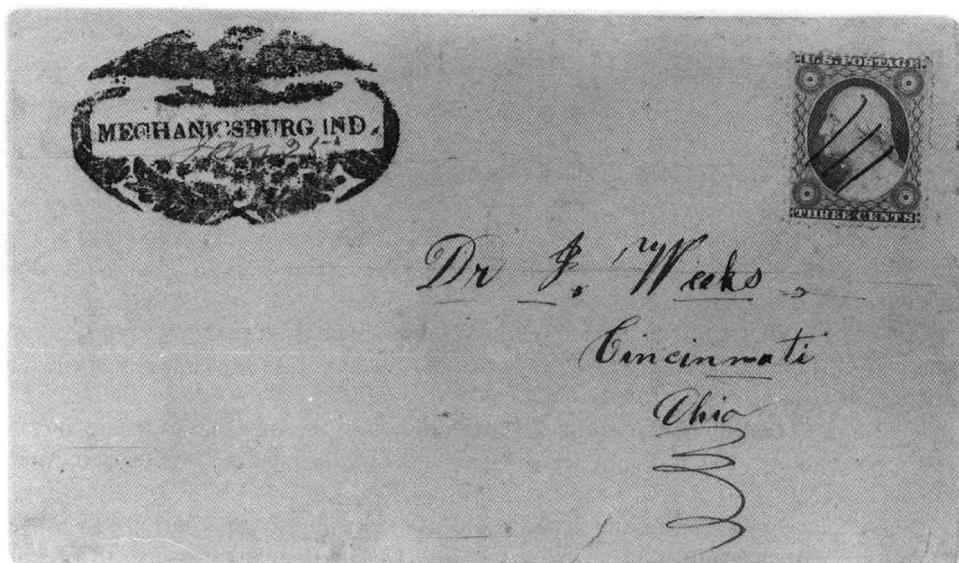 MECHANICSBURG IND.
Jan 25
U.S. POSTAGE
THREE CENTS
Dr J. Weeks
Cincinnati
Ohio